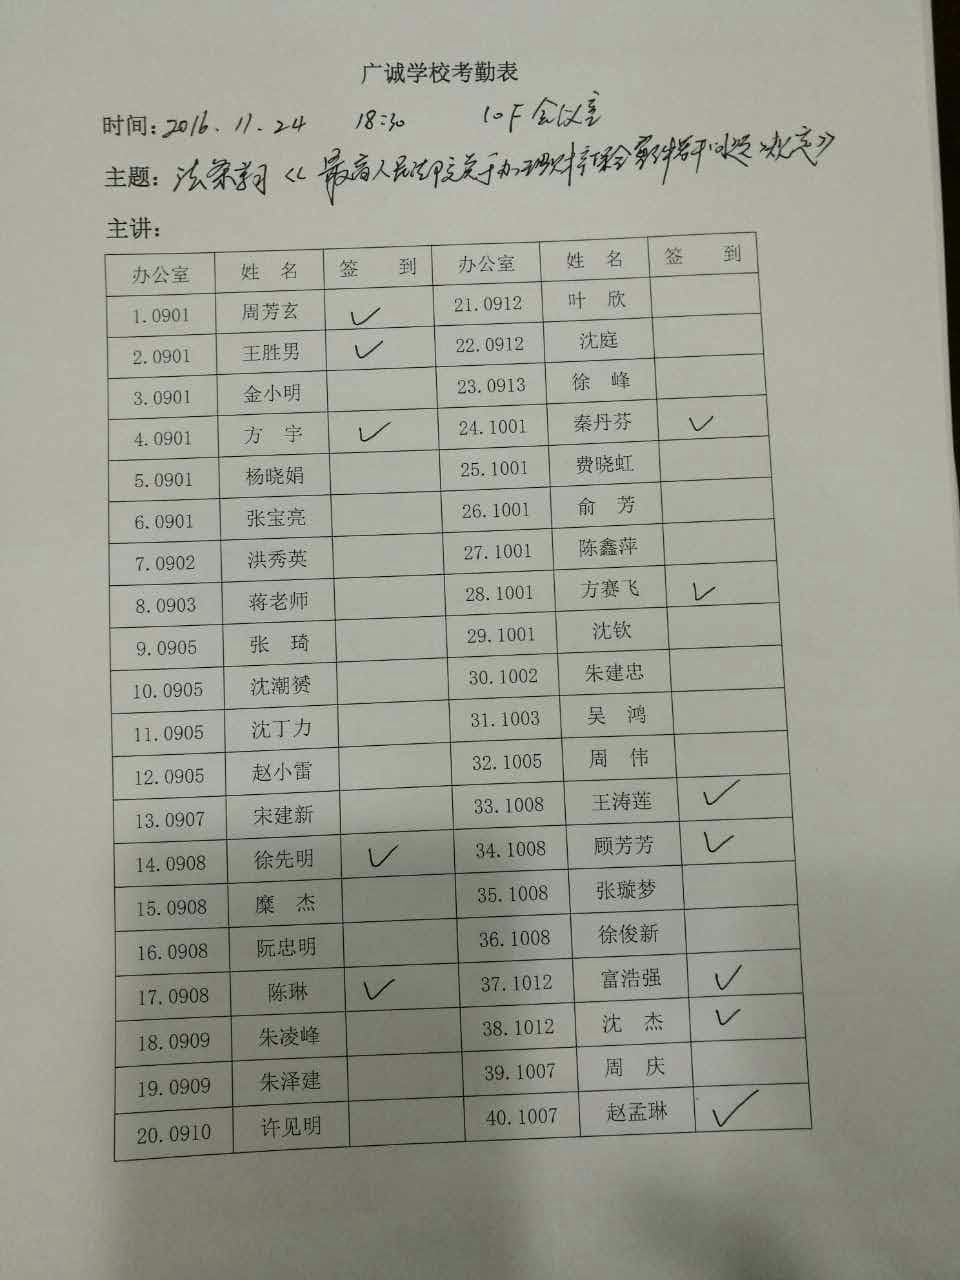 广诚学校考勤表
时间：2016.11.24 18:30 10F会议室
主题：法条学习《最高人民法院关于办理财产保全案件若干问题决定》
主讲：
办公室 姓 名 签 到 办公室 姓 名 签 到
1.0901 周芳玄 ✓ 21.0912 叶 欣
2.0901 王胜男 ✓ 22.0912 沈庭
3.0901 金小明 23.0913 徐 峰
4.0901 方 宇 ✓ 24.1001 秦丹芬 ✓
5.0901 杨晓娟 25.1001 费晓虹
6.0901 张宝亮 26.1001 俞 芳
7.0902 洪秀英 27.1001 陈鑫萍
8.0903 蒋老师 28.1001 方赛飞 ✓
9.0905 张 琦 29.1001 沈钦
10.0905 沈潮赟 30.1002 朱建忠
11.0905 沈丁力 31.1003 吴 鸿
12.0905 赵小雷 32.1005 周 伟
13.0907 宋建新 33.1008 王涛莲 ✓
14.0908 徐先明 ✓ 34.1008 顾芳芳 ✓
15.0908 糜 杰 35.1008 张璇梦
16.0908 阮忠明 36.1008 徐俊新
17.0908 陈琳 ✓ 37.1012 富浩强 ✓
18.0909 朱凌峰 38.1012 沈 杰 ✓
19.0909 朱泽建 39.1007 周 庆
20.0910 许见明 40.1007 赵孟琳 ✓